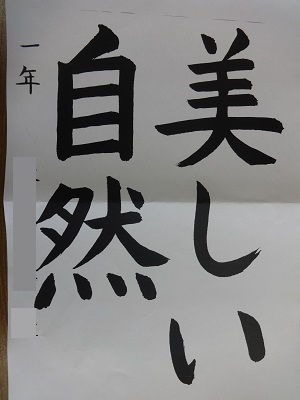 美しい
自然
一年